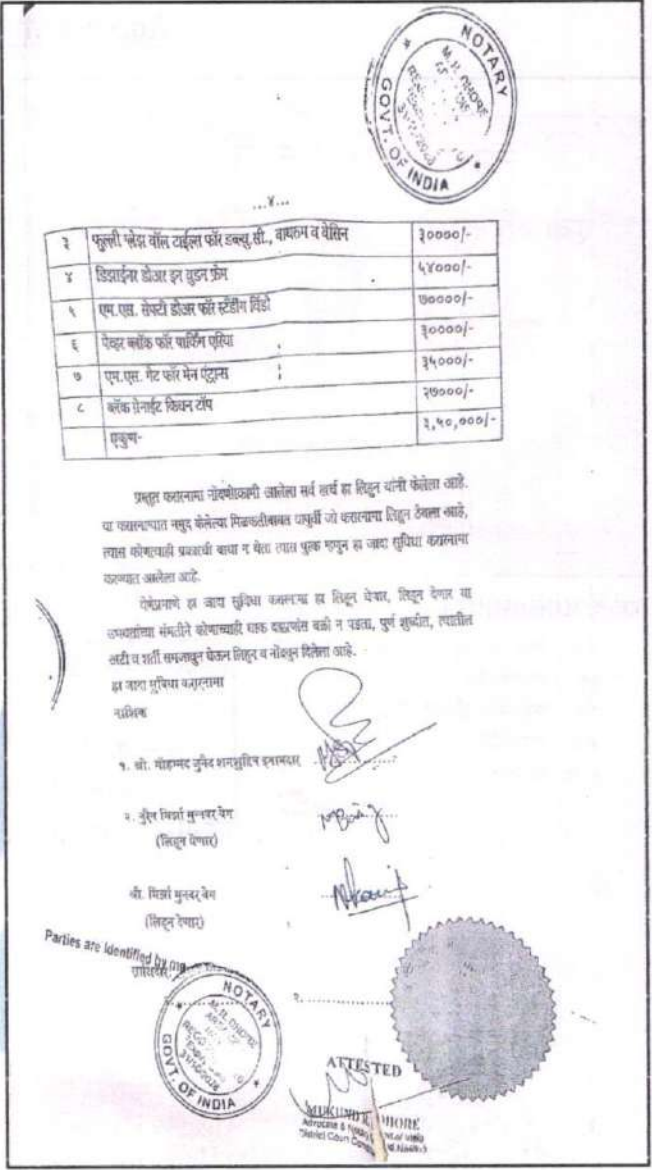 NOTARY
GOVT. OF INDIA
...४...
३ फुल्ली ग्लेझ वॉल टाईल्स फॉर डब्ल्यु.सी., बाथरुम व बेसिन ३००००/-
४ डिझाईनर डोअर इन वुडन फ्रेम ५४०००/-
५ एम.एस. सेफ्टी डोअर फॉर स्टँडींग विंडो ७००००/-
६ पेव्हर ब्लॉक फॉर पार्किंग एरिया ३००००/-
७ एम.एस. गेट फॉर मेन एंट्रान्स ३५०००/-
८ ब्लॅक ग्रेनाईट किचन टॉप २७०००/-
एकुण- ३,५०,०००/-
प्रस्तुत करारनामा नोंदणीकामी आलेला सर्व खर्च हा लिहुन यांनी केलेला आहे.
या करारनाम्यात नमुद केलेल्या मिळकतीबाबत यापुर्वी जो करारनामा लिहुन ठेवला आहे,
त्यास कोणत्याही प्रकारची बाधा न येता त्यास पुरक म्हणुन हा जादा सुविधा करारनामा
करण्यात आलेला आहे.
येणेप्रमाणे हा जादा सुविधा करारनामा हा लिहुन घेणार, लिहुन देणार या
उभयतांच्या संमतीने कोणाच्याही धाक दडपणांस बळी न पडता, पुर्ण शुध्दीत, त्यातील
अटी व शर्ती समजावुन घेऊन लिहुन व नोंदवुन दिलेला आहे.
हा जादा सुविधा करारनामा
नाशिक
१. श्री. मोहम्मद जुनैद शमशुद्दिन इनामदार
२. मिर्झा मुनवर बेग
(लिहून घेणार)
श्री. मिर्झा मुनवर बेग
(लिहून देणार)
Parties are Identified by me
साक्षिदार
२.
NOTARY
GOVT. OF INDIA
ATTESTED
MUKUND R. DHORE
Advocate &
District Court